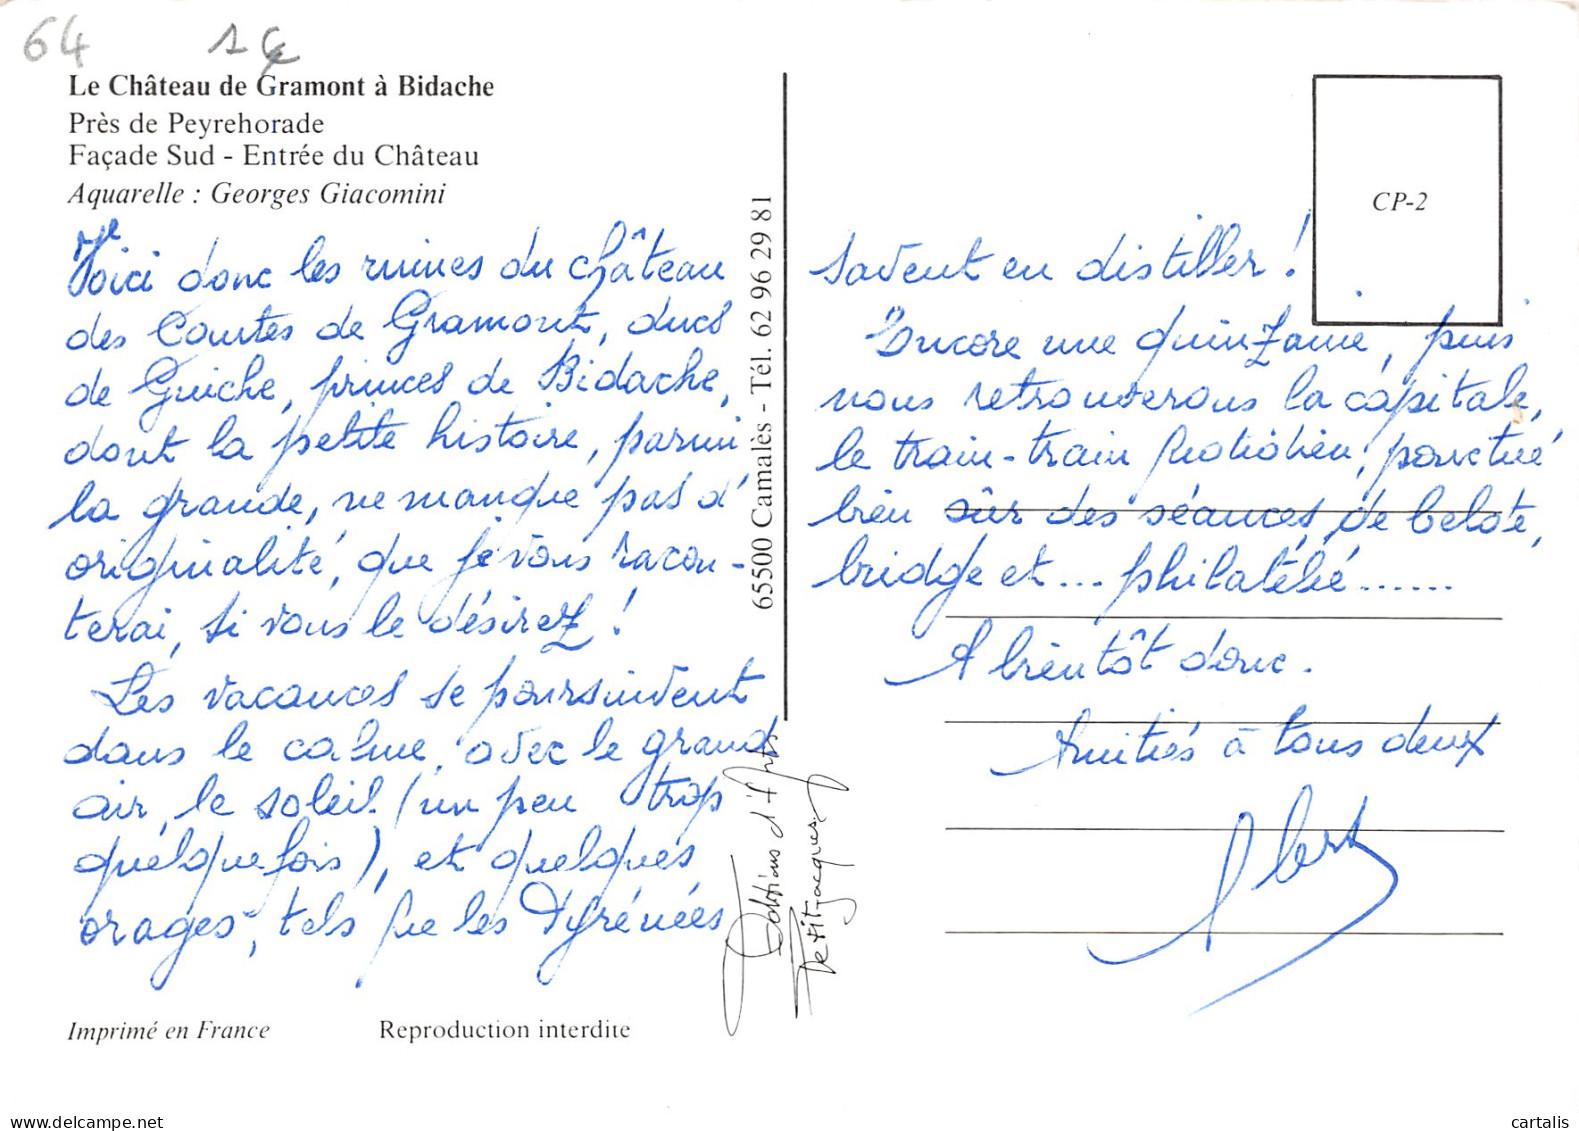 64 1 €
Le Château de Gramont à Bidache
Près de Peyrehorade
Façade Sud - Entrée du Château
Aquarelle : Georges Giacomini
Voici donc les ruines du château
des Comtes de Gramont, ducs
de Guiche, princes de Bidache,
dont la petite histoire, parmi
la grande, ne manque pas d'
originalité, que je vous racon-
terai, si vous le désirez !
Les vacances se poursuivent
dans le calme, avec le grand
air, le soleil (un peu trop
quelquefois), et quelques
orages, tels que les Pyrénées
Imprimé en France Reproduction interdite
65500 Camalès - Tél. 62 96 29 81
Editions d'Arts
Petit Jacques
CP-2
savent en distiller !
Encore une quinzaine, puis
nous retrouverons la capitale,
le train-train quotidien, ponctué
bien sûr des séances de belote,
bridge et ... philatélie ......
A bientôt donc.
Amitiés à tous deux
Albert
delcampe.net
cartalis